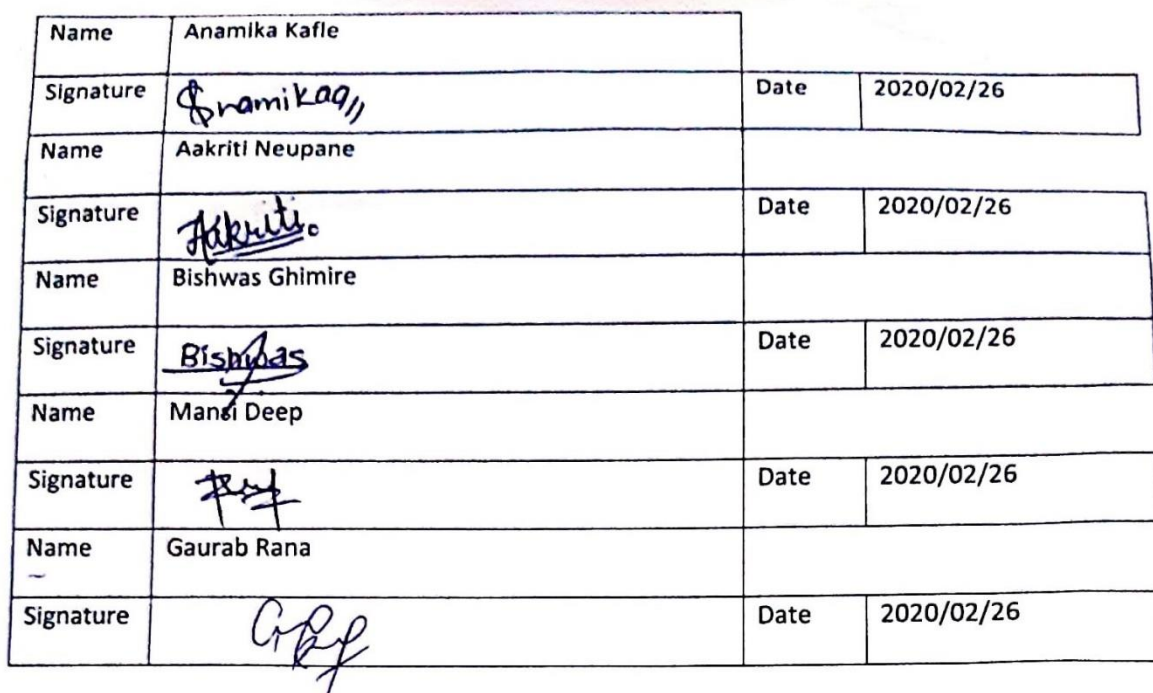 Name Anamika Kafle
Signature Anamika Date 2020/02/26
Name Aakriti Neupane
Signature Aakriti. Date 2020/02/26
Name Bishwas Ghimire
Signature Bishwas Date 2020/02/26
Name Mansi Deep
Signature Date 2020/02/26
Name Gaurab Rana
Signature Date 2020/02/26